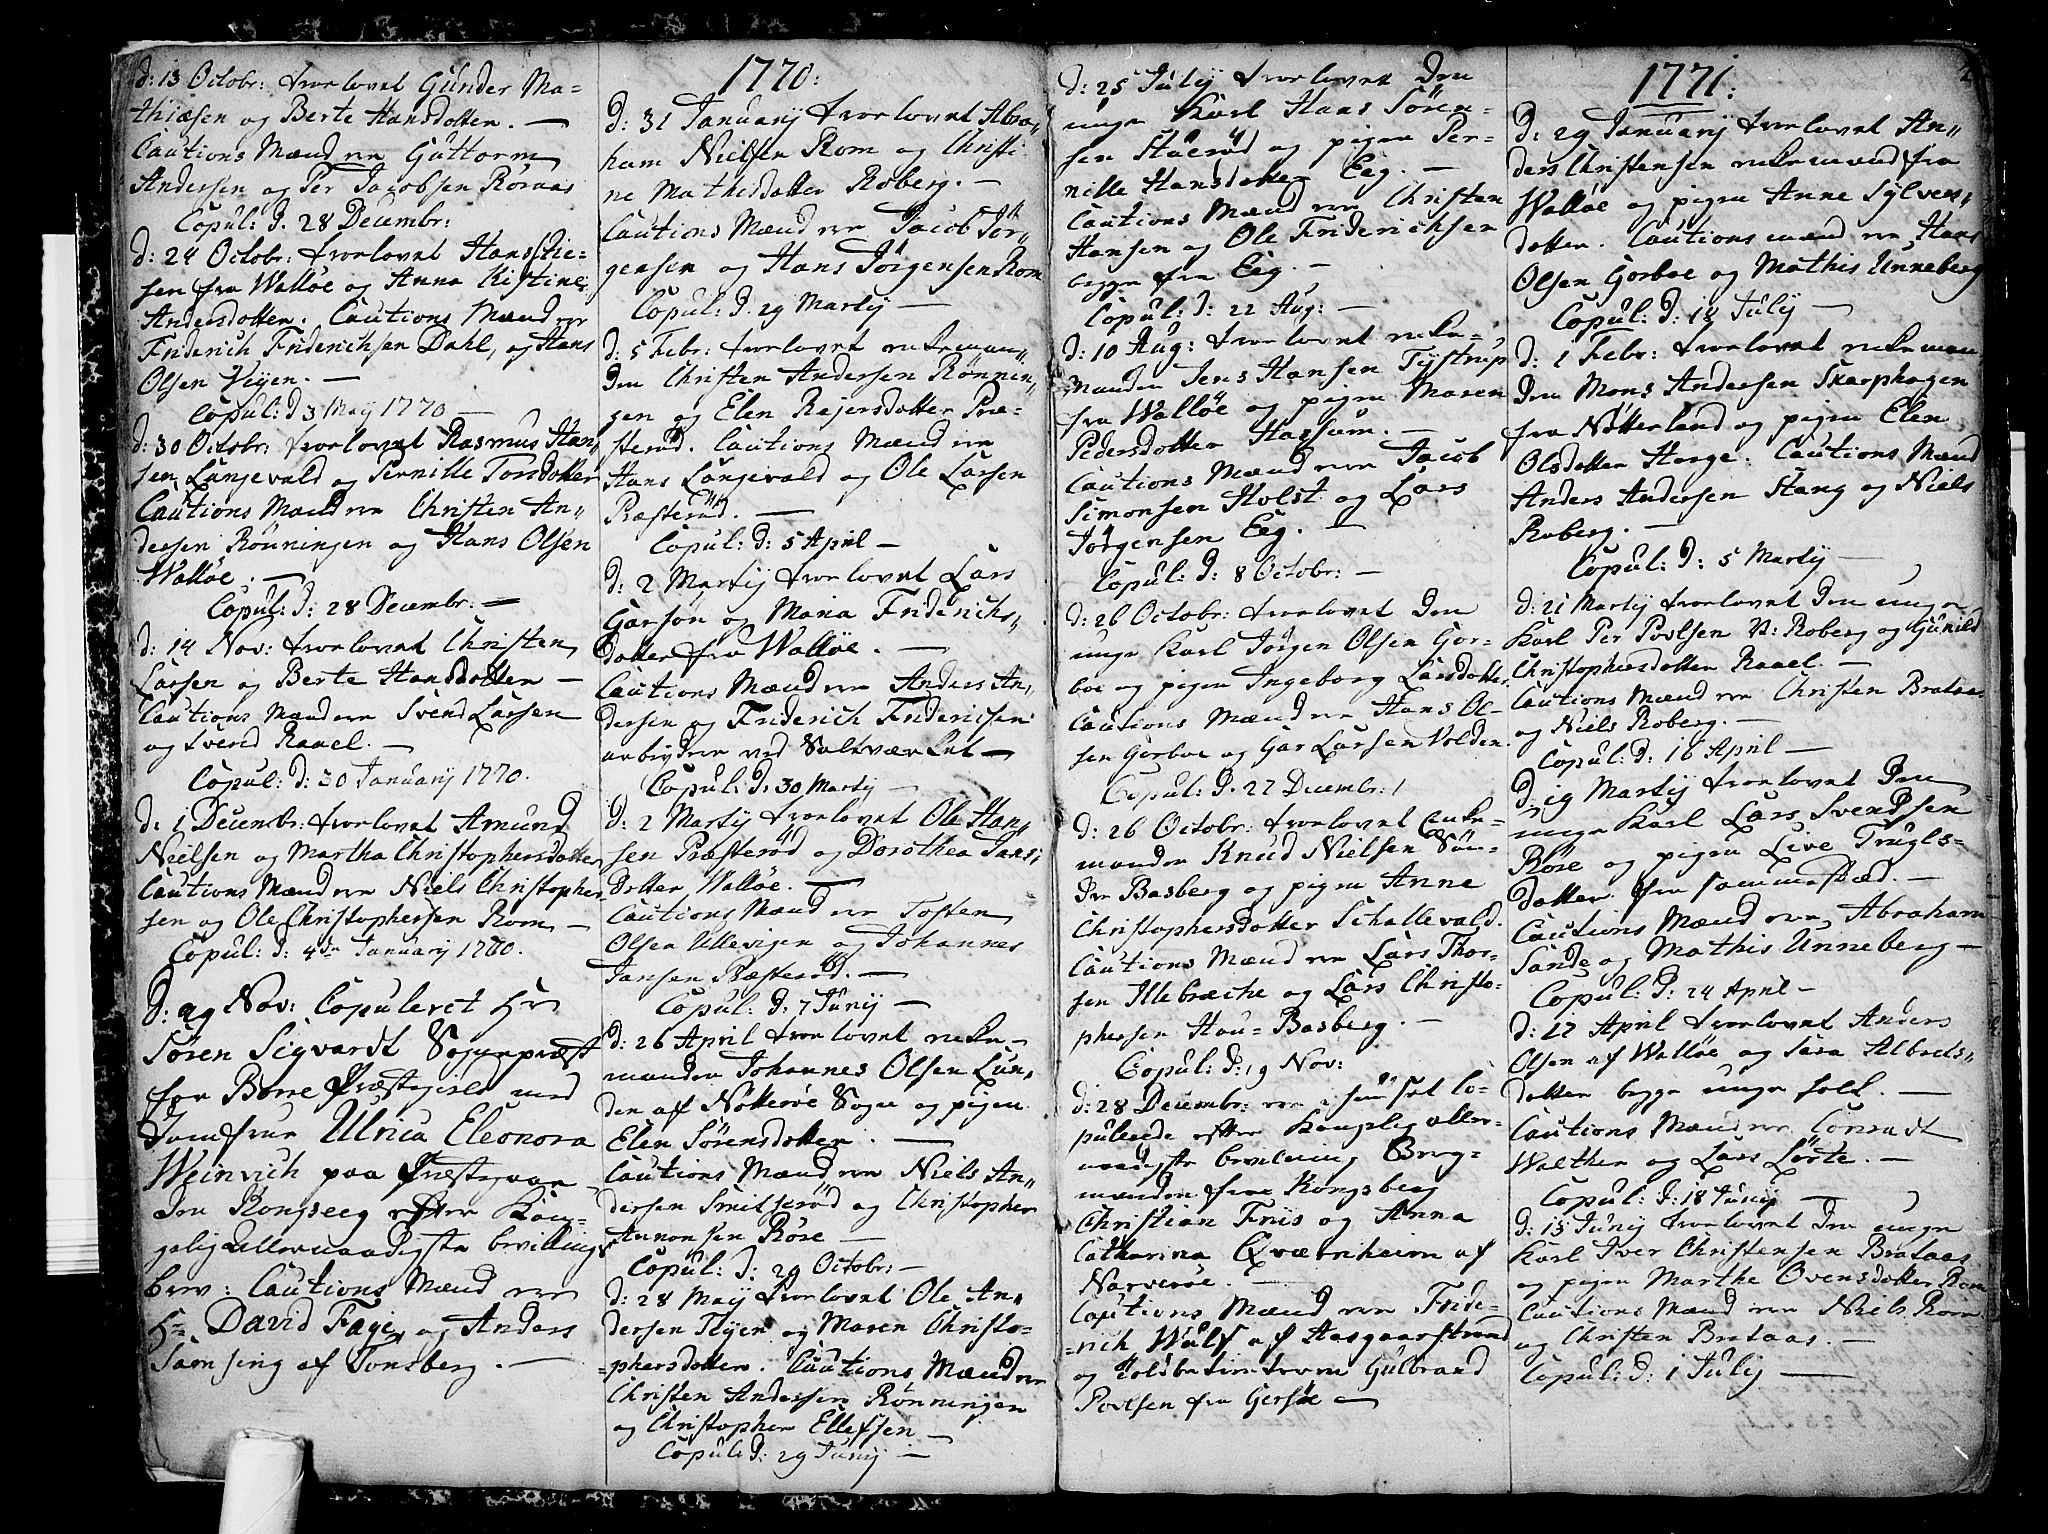 d: 13 Octobr: trorlovet Gunder Ma=
thiæsen og Berte Hansdotter. —
Cautions Mænd ere Guttorm
Andersen og Per Jacobsen Røraas
Copul: d. 28 Decembr:
d: 24 Octobr: trorlovet Hans
sen fra Walløe og Anna Kistine
Andersdotter. Cautions Mænd ere
Friderich Friderichsen Dahl, og Hans
Olsen Veyen. —
Copul: d 3 Maij 1770 —
d: 30 Octobr: trorlovet Rasmus Han
sen Langevald og Pernille Torsdotter
Cautions Mænd ere Christen An"
dersen Rönningen og Hans Olsen
Walløe. —
Copul: d: 28 Decembr: —
d: 14 Nov: trorlovet Christen
Larsen og Berte Hansdotter —
Cautions Mænd ere Svend Larsen
og Svend Raael. —
Copul: d: 30 Januarij 1770.
d: 1 Decembr: trorlovet Amund
Nielsen og Martha Christophersdotter
Cautions Mænd ere Niels Christopher
sen og Ole Christophersen Rom —
Copul: d: 4de Januarij 1780.
d: 29 Nov: Copuleret Hr
Sören Sigvardt Sogneprest
for Borre Præstegield med
Jomfrue Ulrica Eleonora
Weinvich paa Præstegaar
den Rongseeg efter Kon=
gelig Allernaadigste bevillings
brev: Cautions Mænd ere
Hr David Faye og Anders
Samsing af Tonsberg. —
1770:
d: 31 Januarij trorlovet Abra"
ham Nielsen Rom og Christi
ne Mathisdotter Roberg. —
Cautions Mænd ere Jacob Jör"
gensen og Hans Jörgensen Rom
Copul: d. 29 Martij —
d: 5 Febr: trorlovet enkeman"
den Christen Andersen Rönnin"
gen og Elen Rejersdotter Præ=
sterød. Cautions Mænd ere
Hans Langevald og Ole Larsen
Præsterød. —
Copul: d: 5 April —
d: 2 Martij trorlovet Lars
Garsön og Maria Friderichs"
dotter fra Walløe. —
Cautions Mænd ere Anders An"
dersen og Friderich Fridericsen
arbeydere ved Saltværket —
Copul: d: 30 Martij —
d: 2 Martij trorlovet Ole Han"
sen Præsterød og Dorothea Jans"
dotter Walløe. —
Cautions Mænd ere Tosten
Olsen Ullevigen og Johannes
Jansen Præsterød. —
Copul: d. 7 Junij —
d: 26 April trorlovet enke—
manden Johannes Olsen Lun"
den af Nötterøe Sogn og pigen
Elen Sörensdotter. —
Cautions Mænd ere Niels An"
dersen Smitserød og Christopher
Annonsen Röse —
Copul: d: 29 Octobr: —
d: 28 Maij trorlovet Ole An"
dersen Teyen og Maren Christo—
=phersdotter. Cautions Mænd ere
Christen Andersen Rönningen
og Christopher Ellefsen —
Copul: d: 29 Junij —
d: 25 Julij trorlovet den
unge Karl Hans Sören=
sen Staerød og pigen Per=
nille Hansdotter Eeg. —
Cautions Mænd ere Christen
Hansen og Ole Friderichsen
begge fra Eeg. —
Copul: d: 22 Aug: —
d: 10 Aug: trorlovet enke=
manden Jens Hansen Tystrup
fra Walløe og pigen Maren
Pedersdotter Hassum. —
Cautions Mænd ere Jacob
Simonsen Holst og Lars
Jörgensen Eeg. —
Copul: d: 8 Octobr: —
d: 26 Octobr: trorlovet den
unge Karl Jörgen Olsen Gor—
boe og pigen Ingeborg Larsdotter
Cautions Mænd ere Hans Ol—
sen Gorboe og Gar Larsen Volden.
Copul: d. 27 Decembr:
d: 26 Octobr: trorlovet Enke=
manden Knud Nielsen Sön=
dre Basberg og pigen Anne
Christophersdotter Schallevald.
Cautions Mænd ere Lars Thor=
sen Illebræche og Lars Christo=
phersen Hou=Basberg. —
Copul: d: 19 Nov:
d: 28 Decembr: ere i huuset co—
pulerede efter Kongelig aller=
naadigste bevilning Berg=
manden fra Kongsberg
Christian Friis og Anna
Catharina Qværnheim af
Narverøe. —
Cautions Mænd ere Fride=
=rich Wulf af Aasgaarstrand
og Toldbetientern Gulbrand
Povlsen fra Gersöe —
1771:
d: 29 Januarij trorlovet An"
ders Christensen enkemand fra
Walløe og pigen Anne Sylvers"
dotter. Cautions mænd ere Hans
Olsen Gorboe og Mathis Unneberg
Copul: d: 18 Julij —
d: 1 Febr: trorlovet enkeman
den Mons Andersen Skarphagen
fra Nötterland og pigen Elen
Olsdotter Horge. Cautions Mænd
Anders Andersen Stang og Niels
Roberg. —
Copul: d: 5 Martij —
d: 21 Martij trorlovet den unge
Karl Per Povlsen N: Roberg og Gunild
Christophersdotter Raael. —
Cautions Mænd ere Christen Brataas
og Niels Roberg. —
Copul: d: 16 April —
d: 19 Martij trorlovet den
unge Karl Lars Svendsen
Röse og pigen Live Trugls=
dotter fra sammestæd. —
Cautions Mænd ere Abraham
Sande og Mathis Unneberg —
Copul: d: 24 April —
d: 17 April trorlovet Anders
Olsen af Walløe og Sara Albrets"
dotter begge unge folk. —
Cautions Mænd ere Conradt
Walther og Lars Lörte. —
Copul: d: 18 Junij —
d: 15 Junij trorlovet den unge
Karl Iver Christensen Brataas
og pigen Marthe Ovensdotter Rom
Cautions Mænd ere Niels Rom
og Christen Brataas. —
Copul: d: 1 Julij —